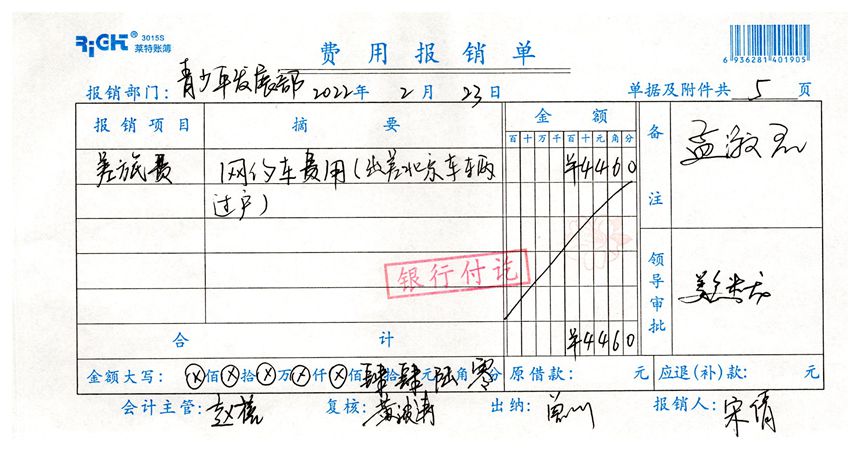 RiGHT® 3015S 莱特账簿
费用报销单
6 936281 401905
报销部门：青少年发展部 2022年 2月 23日 单据及附件共 5 页
报销项目 摘要 金额 备注
百十万千百十元角分
差旅费 网约车费用（出差北京车辆 ¥4460
过户）
银行付讫
领导审批
合计 ¥4460
金额大写：ⓧ佰ⓧ拾ⓧ万ⓧ仟ⓧ佰肆拾肆元陆角零分 原借款： 元 应退（补）款： 元
会计主管： 复核：黄波涛 出纳：曾川 报销人：宋倩